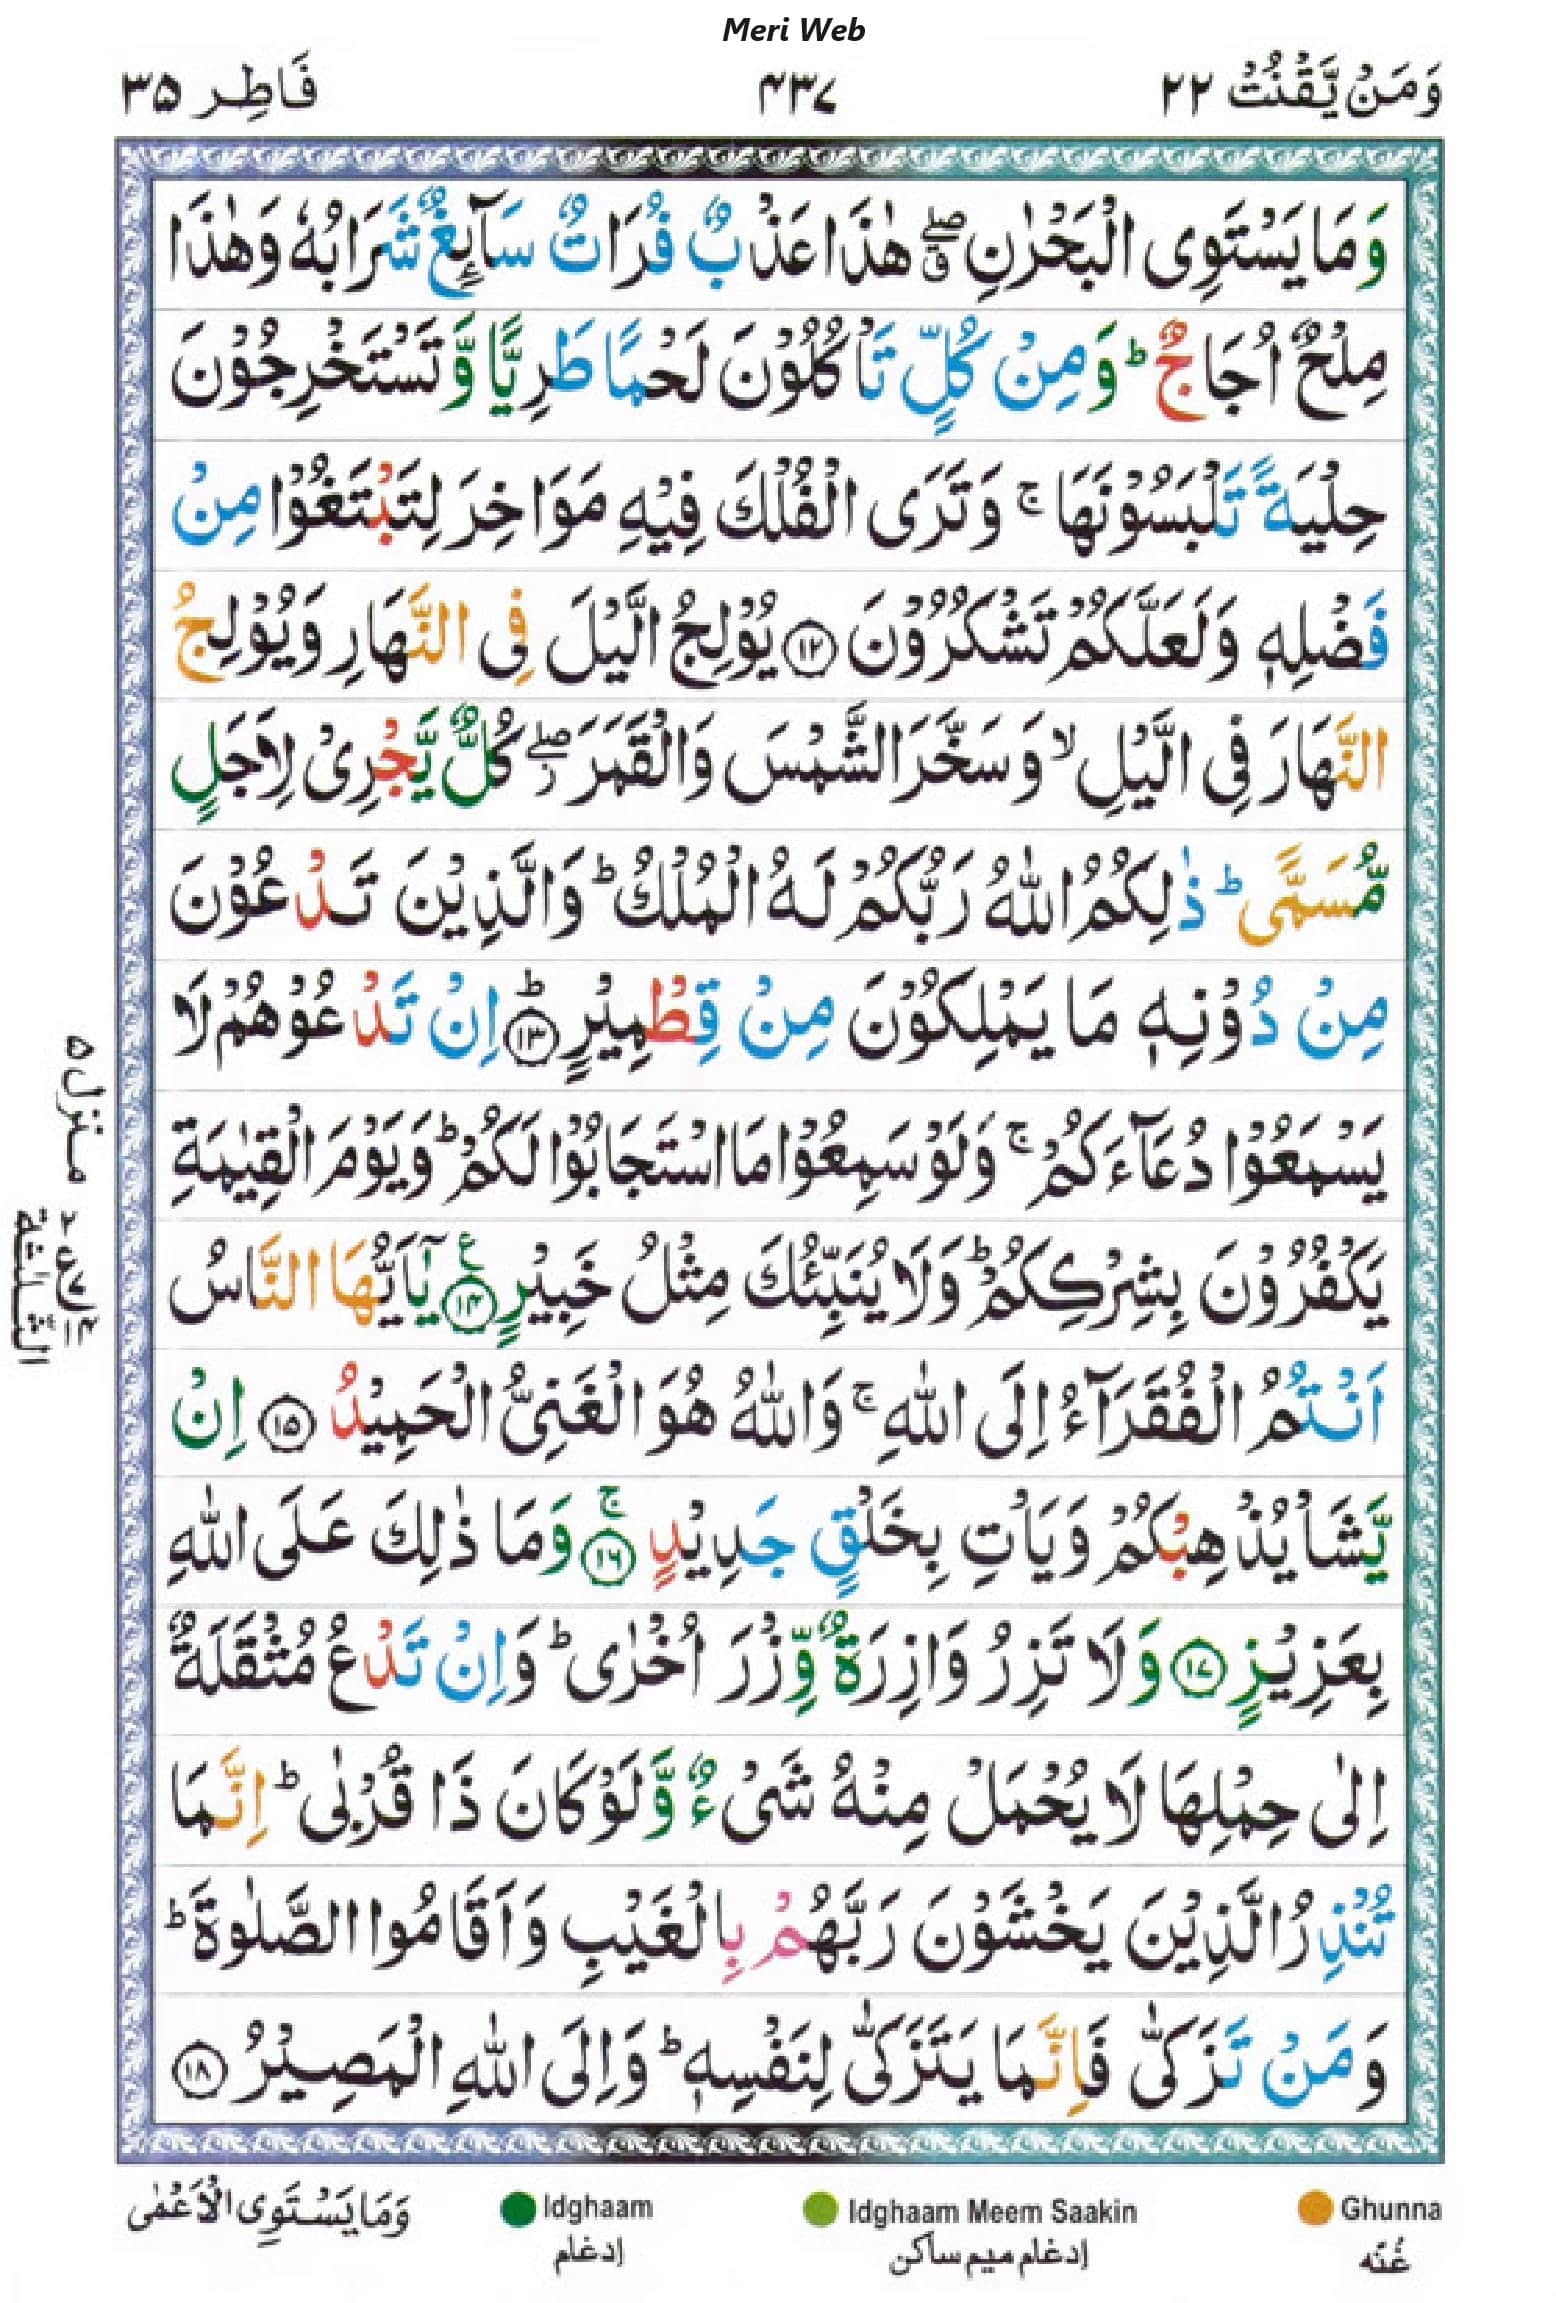 Meri Web
وَمَنْ يَّقْنُتْ ٢٢
٤٣٧
فَاطِر ٣٥
وَمَا يَسْتَوِى الْبَحْرٰنِ ۖۗ هٰذَا عَذْبٌ فُرَاتٌ سَآىِٕغٌ شَرَابُهٗ وَهٰذَا
مِلْحٌ اُجَاجٌ ؕ وَمِنْ كُلٍّ تَاْكُلُوْنَ لَحْمًا طَرِيًّا وَّتَسْتَخْرِجُوْنَ
حِلْيَةً تَلْبَسُوْنَهَا ۚ وَتَرَى الْفُلْكَ فِيْهِ مَوَاخِرَ لِتَبْتَغُوْا مِنْ
فَضْلِهٖ وَلَعَلَّكُمْ تَشْكُرُوْنَ ﴿١٢﴾ يُوْلِجُ الَّيْلَ فِى النَّهَارِ وَيُوْلِجُ
النَّهَارَ فِى الَّيْلِ ۙ وَسَخَّرَ الشَّمْسَ وَالْقَمَرَ ۖؗ كُلٌّ يَّجْرِىْ لِاَجَلٍ
مُّسَمًّى ؕ ذٰلِكُمُ اللّٰهُ رَبُّكُمْ لَهُ الْمُلْكُ ؕ وَالَّذِيْنَ تَدْعُوْنَ
مِنْ دُوْنِهٖ مَا يَمْلِكُوْنَ مِنْ قِطْمِيْرٍ ؕ﴿١٣﴾ اِنْ تَدْعُوْهُمْ لَا
يَسْمَعُوْا دُعَآءَكُمْ ۚ وَلَوْ سَمِعُوْا مَا اسْتَجَابُوْا لَكُمْ ؕ وَيَوْمَ الْقِيٰمَةِ
يَكْفُرُوْنَ بِشِرْكِكُمْ ؕ وَلَا يُنَبِّئُكَ مِثْلُ خَبِيْرٍ ﴿١٤﴾ ع يٰۤاَيُّهَا النَّاسُ
اَنْتُمُ الْفُقَرَآءُ اِلَى اللّٰهِ ۚ وَاللّٰهُ هُوَ الْغَنِىُّ الْحَمِيْدُ ﴿١٥﴾ اِنْ
يَّشَاْ يُذْهِبْكُمْ وَيَاْتِ بِخَلْقٍ جَدِيْدٍ ۚ﴿١٦﴾ وَمَا ذٰلِكَ عَلَى اللّٰهِ
بِعَزِيْزٍ ﴿١٧﴾ وَلَا تَزِرُ وَازِرَةٌ وِّزْرَ اُخْرٰى ؕ وَاِنْ تَدْعُ مُثْقَلَةٌ
اِلٰى حِمْلِهَا لَا يُحْمَلْ مِنْهُ شَىْءٌ وَّلَوْ كَانَ ذَا قُرْبٰى ؕ اِنَّمَا
تُنْذِرُ الَّذِيْنَ يَخْشَوْنَ رَبَّهُمْ بِالْغَيْبِ وَاَقَامُوا الصَّلٰوةَ ؕ
وَمَنْ تَزَكّٰى فَاِنَّمَا يَتَزَكّٰى لِنَفْسِهٖ ؕ وَاِلَى اللّٰهِ الْمَصِيْرُ ﴿١٨﴾
منزل ٥
الثلثة
Ghunna
غُنّه
Idghaam Meem Saakin
إدغام ميم ساكن
Idghaam
إدغام
وَمَا يَسْتَوِى الْاَعْمٰى